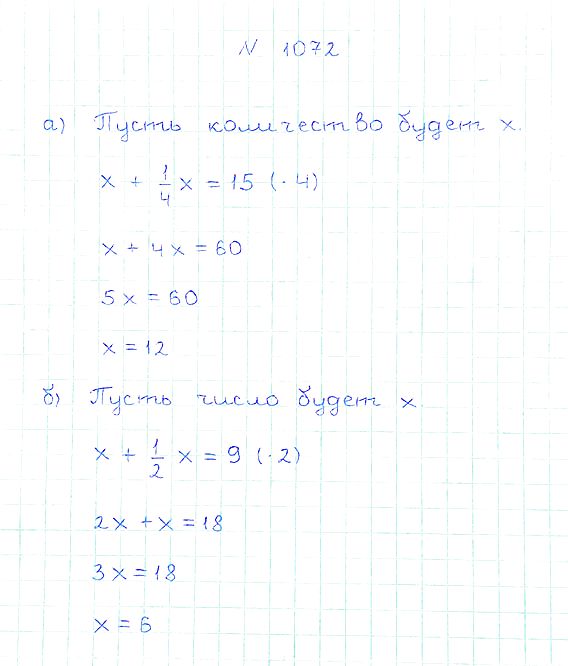 N 1072
а) Пусть количество будет x.
x + 1/4 x = 15 (· 4)
x + 4x = 60
5x = 60
x = 12
б) Пусть число будет x
x + 1/2 x = 9 (· 2)
2x + x = 18
3x = 18
x = 6